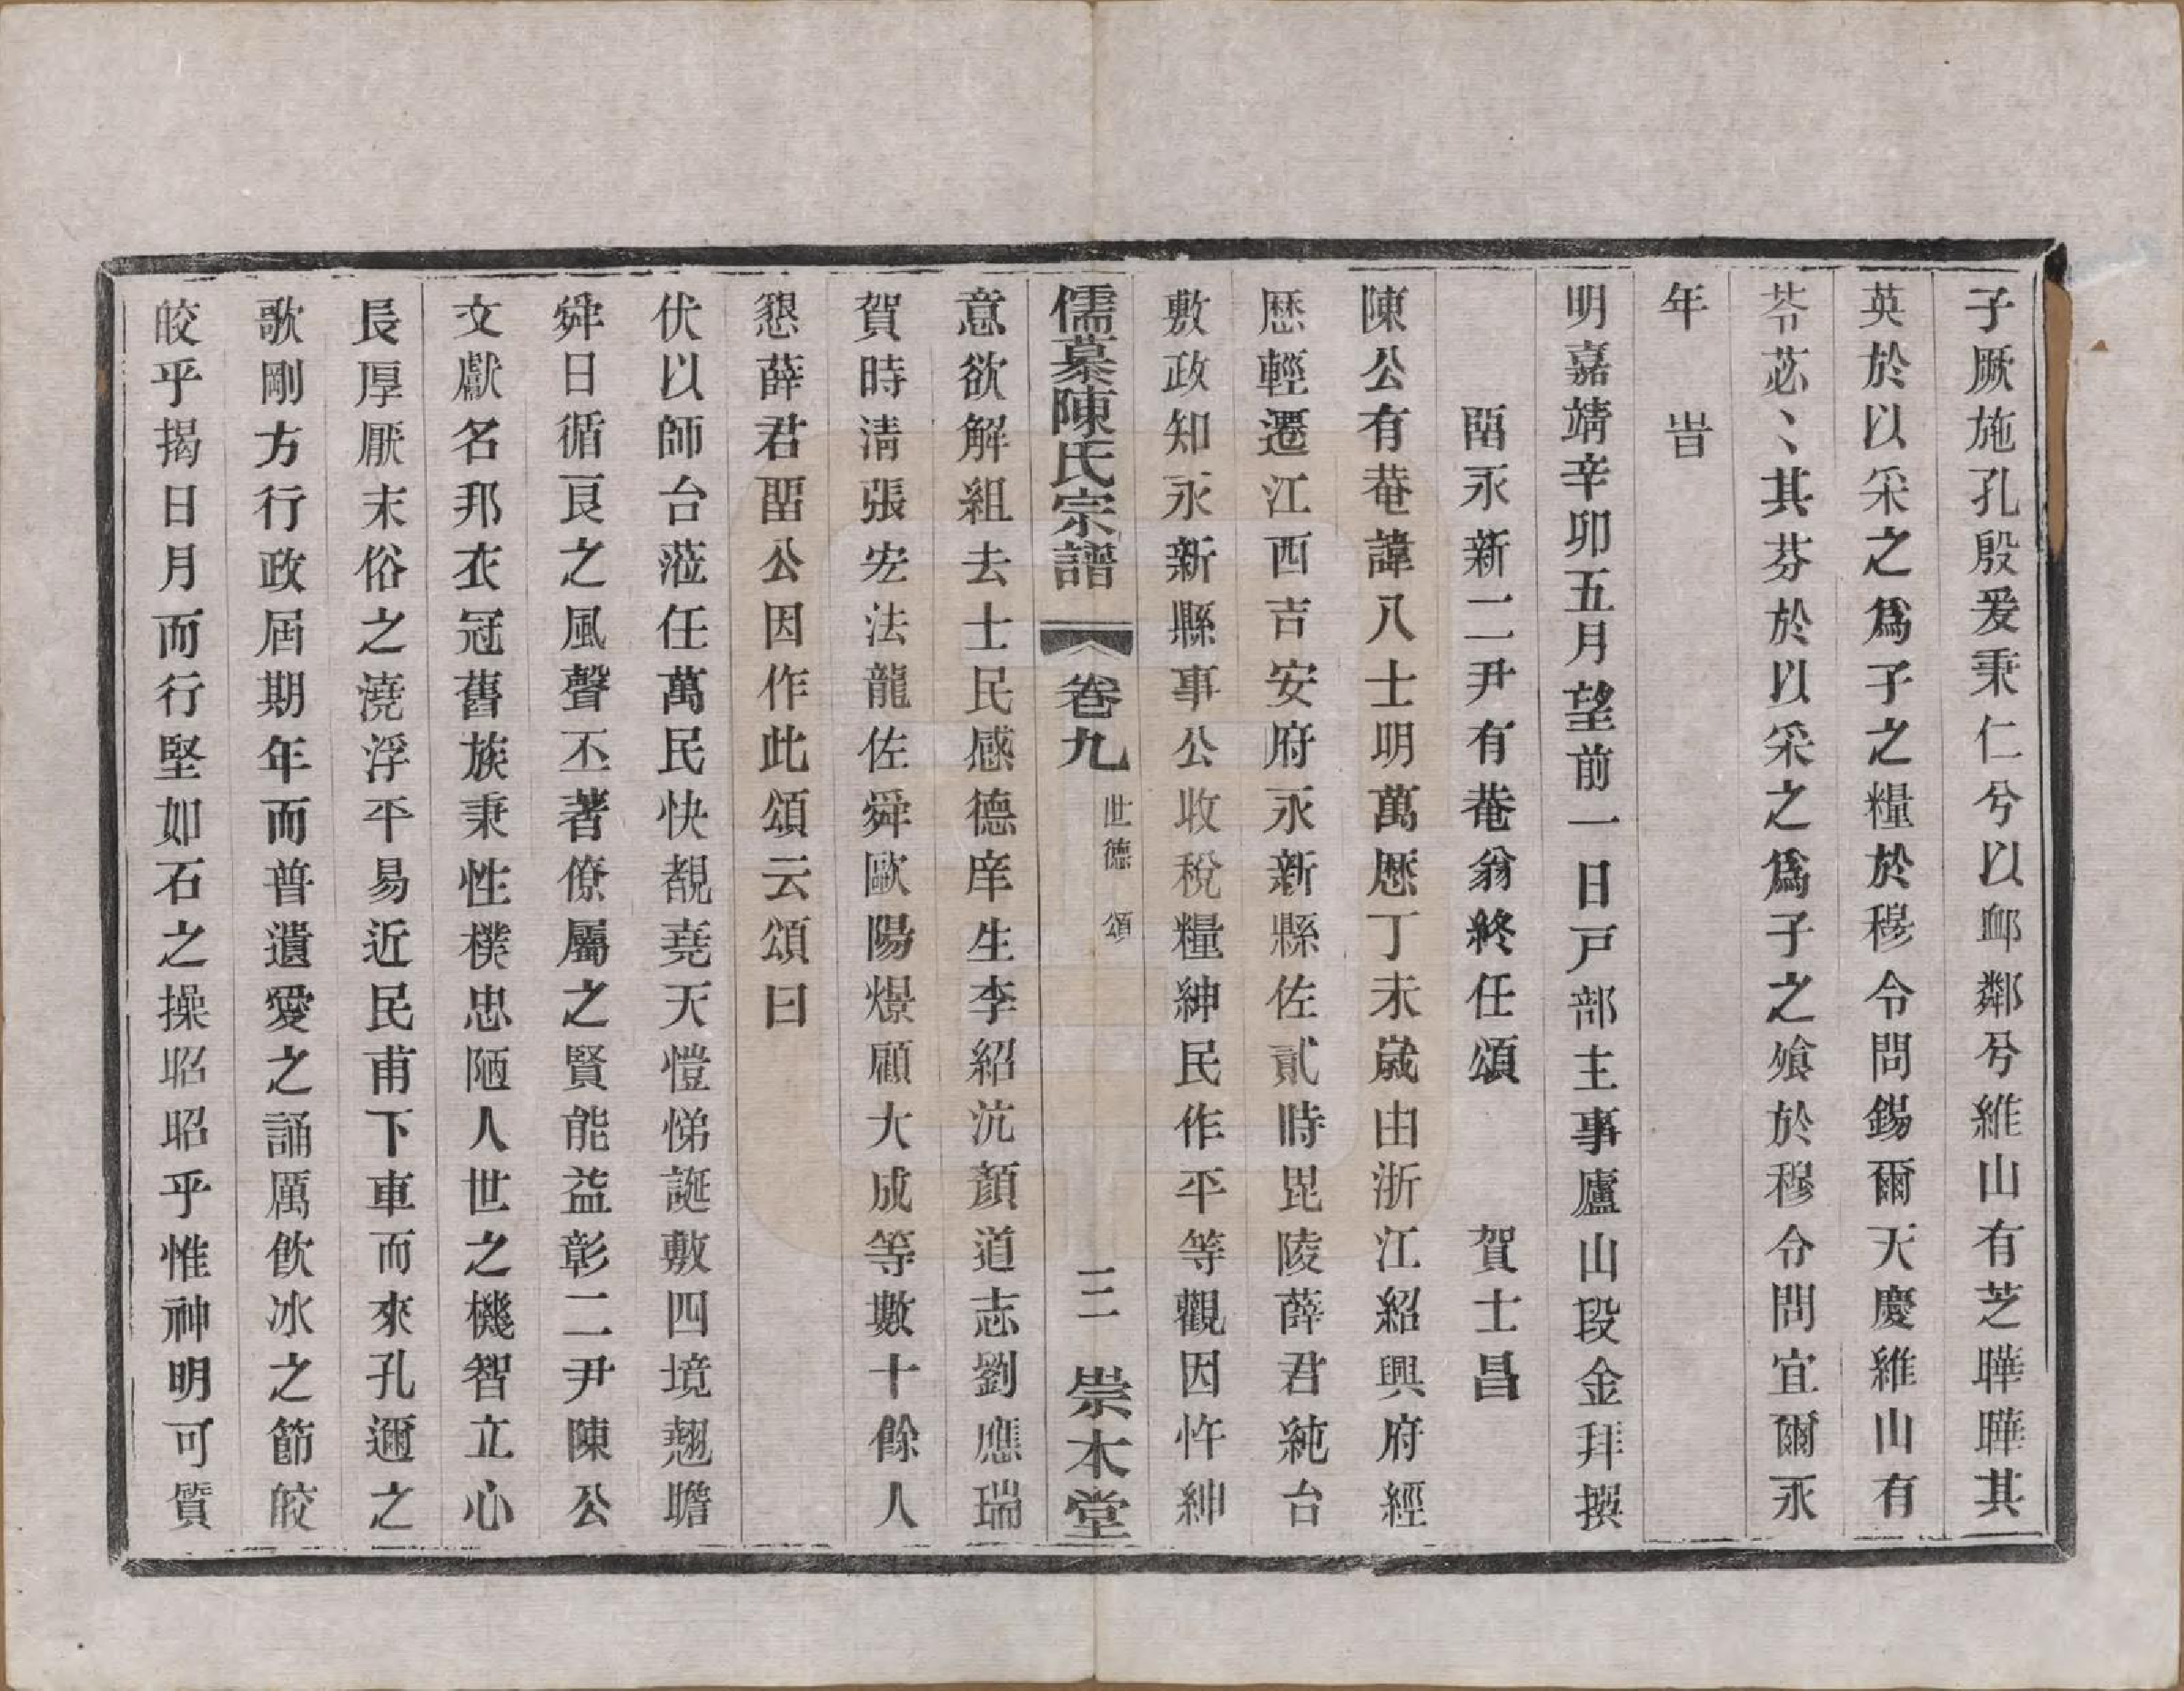 子厥施孔殷爰秉仁兮以䘏鄰兮維山有芝曄曄其
英於以采之爲子之糧於穆令問錫爾天慶維山有
苓苾〻其芬於以采之爲子之飧於穆令問宜爾永
年　旹
明嘉靖辛卯五月望前一日戸部主事廬山段金拜撰
畱永新二尹有菴翁終任頌　賀士昌
陳公有菴諱八士明萬歴丁未歲由浙江紹興府經
歴輕遷江西吉安府永新縣佐貳時毘陵薛君純台
敷政知永新縣事公收稅糧紳民作平等觀因忤紳
儒慕陳氏宗譜　卷九　世德　頌　三　崇本堂
意欲解組去士民感德庠生李紹沆顏道志劉應瑞
賀時淸張宏法龍佐舜歐陽燝顧大成等數十餘人
懇薛君畱公因作此頌云頌曰
伏以師台蒞任萬民快覩堯天愷悌誕敷四境翹瞻
舜日循良之風聲丕著僚屬之賢能益彰二尹陳公
文獻名邦衣冠舊族秉性樸忠陋人世之機智立心
長厚厭末俗之澆浮平易近民甫下車而來孔邇之
歌剛方行政屆期年而普遺愛之誦厲飮冰之節皎
皎乎揭日月而行堅如石之操昭昭乎惟神明可質